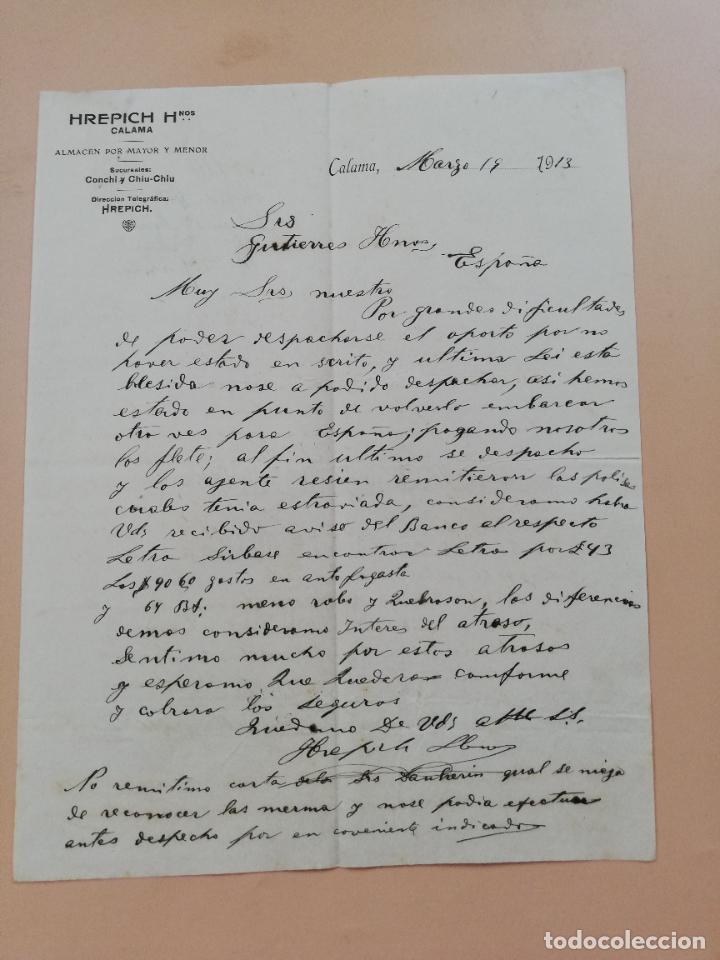 HREPICH Hnos
CALAMA
ALMACEN POR MAYOR Y MENOR
Sucursales:
Conchi y Chiu-Chiu
Direccion Telegráfica:
HREPICH.
Calama, Marzo 19 1913
Srs
Gutierres Hnos,
España
Muy Srs nuestro
Por grandes dificultades
de poder despacharse el oporto por no
haver estado en scrito, y ultima Lei esta
blesida nose a podido despachar, asi hemos
estado en punto de volverlo embarcar
otra ves para España; pagando nosotros
los flete; al fin ultimo se despacho
y los ajente resien remitieron las polises
cuales tenia estraviada, consideramo habra
Vds recibido aviso del Banco al respecto
Letra Sirbase encontrar Letra por £43
Las $90 60 gastos en antofagasta
y 64 meno robo y Quebrason, las diferencias
demas consideramo Interes del atraso,
Sentimo mucho por estos atrasos
y esperamo Que Quedara comforme
y cobrara los seguros
Quedamo De Vds S.S.
Hrepich Hnos
No remitimo carta Srs qual se niega
de reconocer las merma y nose podia efectuar
antes despacho por en coveniente indicado
todocoleccion
todocoleccion.net